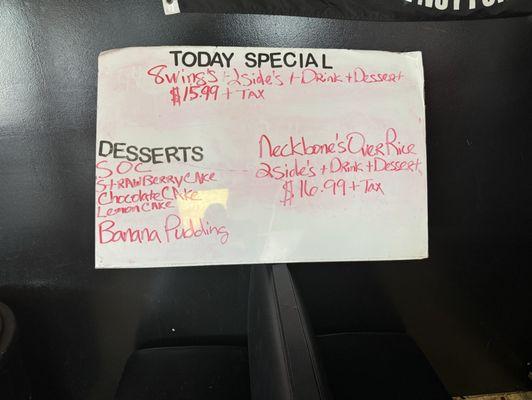 TODAY SPECIAL
8wing's + 2side's + Drink + Dessert
$15.99 + TAX
DESSERTS
SOC
STRAWBERRY CAKE
Chocolate CAKE
Lemon CAKE
Banana Pudding
Neckbone's Over Rice
2side's + Drink + Dessert
$16.99 + Tax